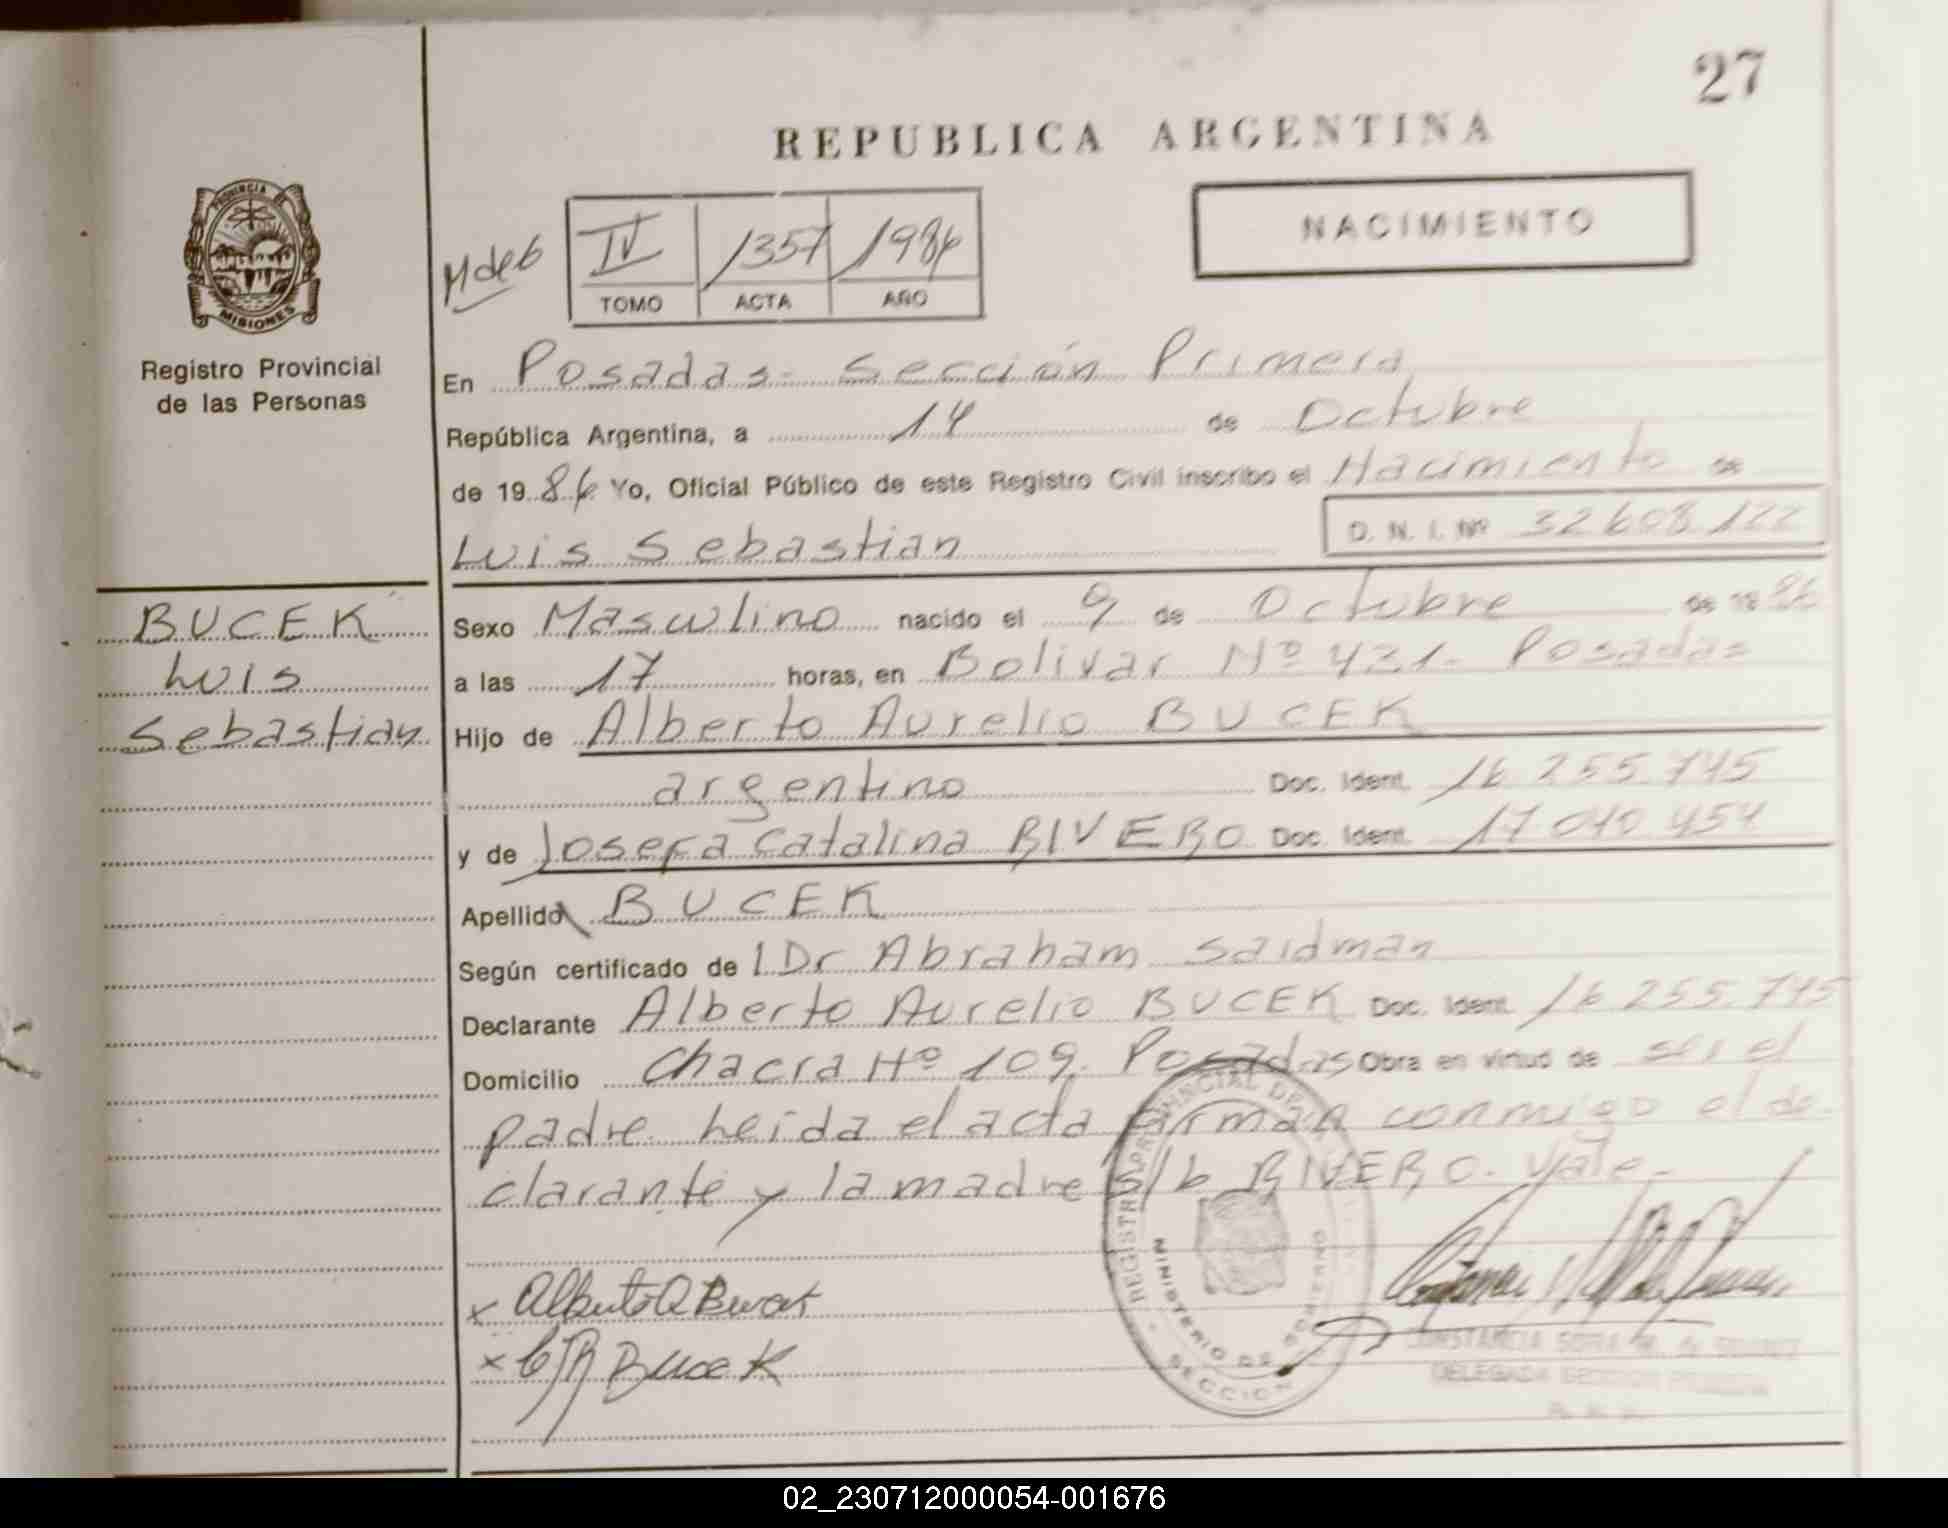 27
REPUBLICA ARGENTINA
PROVINCIA DE
MISIONES
Registro Provincial
de las Personas
IV 1357 1986
TOMO ACTA AÑO
NACIMIENTO
En Posadas - Sección Primera
República Argentina, a 14 de Octubre
de 19 86 Yo, Oficial Público de este Registro Civil inscribo el Nacimiento de
Luis Sebastian D. N. I. Nº 32608.122
BUCEK
Luis
Sebastian
Sexo Masculino nacido el 9 de Octubre de 19 86
a las 17 horas, en Bolivar Nº 421- Posadas
Hijo de Alberto Aurelio BUCEK
argentino Doc. Ident. 16 255 745
y de Josefa Catalina RIVERO Doc. Ident. 17 040 454
Apellido BUCEK
Según certificado de l Dr Abraham Saidman
Declarante Alberto Aurelio BUCEK Doc. Ident. 16 255.745
Domicilio Chacra Nº 109. Posadas Obra en virtud de ser el
padre. Leida el acta firman conmigo el de-
clarante y la madre s/b RIVERO. Vale-
x Alberto A Bucek
x Bucek
REGISTRO PROVINCIAL DE
MINISTERIO DE GOBIERNO
SECCION
CONSTANCIA SOFIA M. de
DELEGADA SECCION PRIMERA
02_230712000054-001676